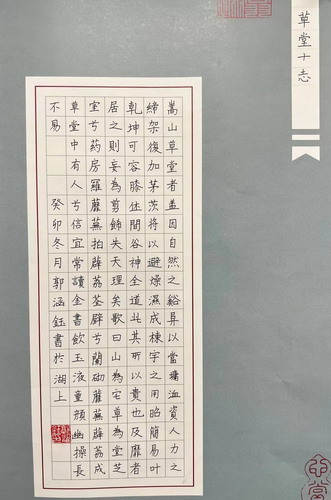 草堂十志
嵩山草堂者盖因自然之谿阜以當墉洫資人力之
締架復加茅茨将以避燥濕成棟宇之用昭簡易叶
乾坤可容膝休閒谷神全道此其所以貴也及靡者
居之則妄為剪飾失天理矣歌曰山為宅草為堂芝
室兮药房羅蘼蕪拍薜荔荃壁兮蘭砌蘼蕪薜荔成
草堂中有人兮信宜常讀金書飲玉液童顏幽操長
不易 癸卯冬月郭涵鈺書於湖上